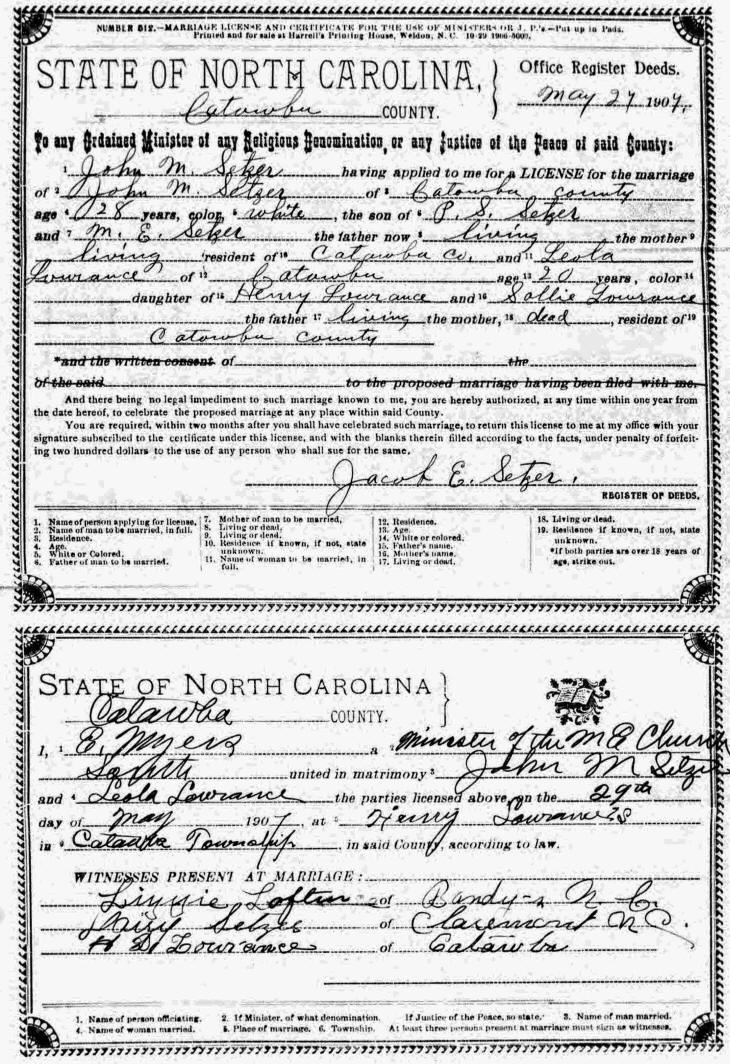 NUMBER 612.—MARRIAGE LICENSE AND CERTIFICATE FOR THE USE OF MINISTERS OR J. P.'s.—Put up in Pads.
Printed and for sale at Harrell's Printing House, Weldon, N. C. 10-29 1906-5000.
STATE OF NORTH CAROLINA,
Office Register Deeds.
Catawba COUNTY.
May 27 1907.
To any Ordained Minister of any Religious Denomination, or any Justice of the Peace of said County:
1 John M. Setzer having applied to me for a LICENSE for the marriage
of 2 John M. Setzer of 3 Catawba county
age 4 28 years, color, 5 white, the son of 6 P. S. Setzer
and 7 M. E. Setzer the father now 8 living the mother 9
living resident of 10 Catawba Co. and 11 Leola
Lowrance of 12 Catawba age 13 20 years, color 14
daughter of 15 Henry Lowrance and 16 Sallie Lowrance
the father 17 living the mother, 18 dead, resident of 19
Catawba county
*and the written consent of the
of the said to the proposed marriage having been filed with me.
And there being no legal impediment to such marriage known to me, you are hereby authorized, at any time within one year from
the date hereof, to celebrate the proposed marriage at any place within said County.
You are required, within two months after you shall have celebrated such marriage, to return this license to me at my office with your
signature subscribed to the certificate under this license, and with the blanks therein filled according to the facts, under penalty of forfeit-
ing two hundred dollars to the use of any person who shall sue for the same.
Jacob E. Setzer.
REGISTER OF DEEDS.
1. Name of person applying for license.
2. Name of man to be married, in full.
3. Residence.
4. Age.
5. White or Colored.
6. Father of man to be married.
7. Mother of man to be married,
8. Living or dead,
9. Living or dead.
10. Residence if known, if not, state
unknown.
11. Name of woman to be married, in
full.
12. Residence.
13. Age.
14. White or colored.
15. Father's name.
16. Mother's name.
17. Living or dead.
18. Living or dead.
19. Residence if known, if not, state
unknown.
*If both parties are over 18 years of
age, strike out.
STATE OF NORTH CAROLINA
Catawba COUNTY.
I, 1 E. Myers a 2 Minister of the M E Church
South united in matrimony 3 John M Setzer
and 4 Leola Lowrance the parties licensed above, on the 29th
day of May 1907, at 5 Henry Lowrance's
in 6 Catawba Township, in said County, according to law.
WITNESSES PRESENT AT MARRIAGE:
Linnie Loftin of Bandy-s N C.
Setzer of Claremont N C.
H D. Lowrance of Catawba
1. Name of person officiating. 2. If Minister, of what denomination. If Justice of the Peace, so state. 3. Name of man married.
4. Name of woman married. 5. Place of marriage. 6. Township. At least three persons present at marriage must sign as witnesses.